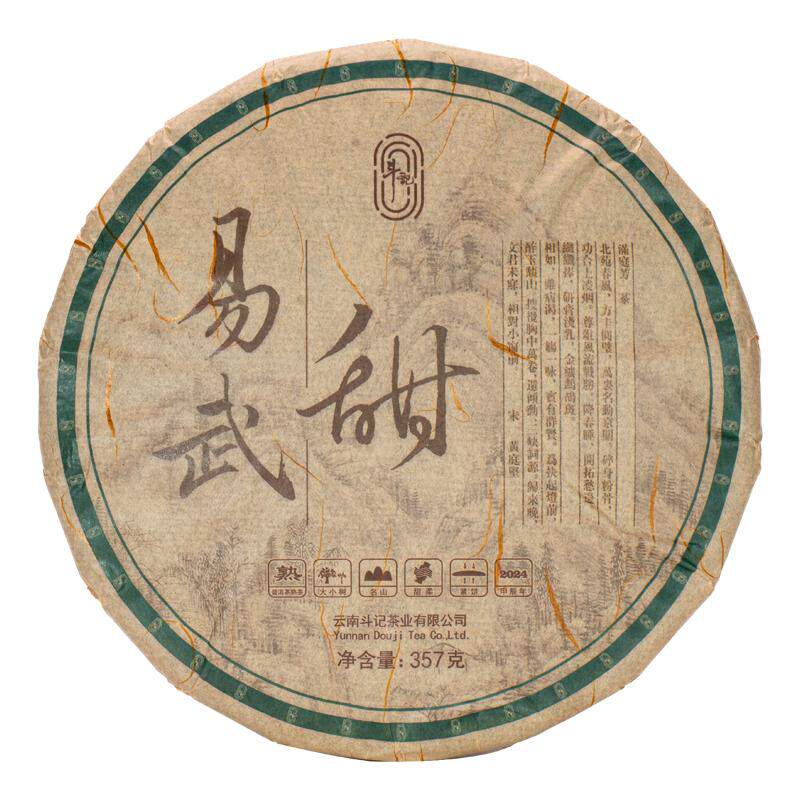 斗記
易武
甜
滿庭芳 茶
北苑春風，方圭圓璧，萬里名動京關。碎身粉骨，
功合上凌煙。尊俎風流戰勝，降春睡、開拓愁邊。
纖纖捧，研膏濺乳，金縷鷓鴣斑。
相如，雖病渴，一觴一詠，賓有群賢。為扶起燈前，
醉玉頹山。搜攪胸中萬卷，還傾動、三峽詞源。歸來晚，
文君未寢，相對小窗前。 宋 黃庭堅
熟 2024
普洱茶熟茶 大小树 名山 甜柔 紧饼 甲辰年
云南斗记茶业有限公司
Yunnan Douji Tea Co.,Ltd.
净含量：357克